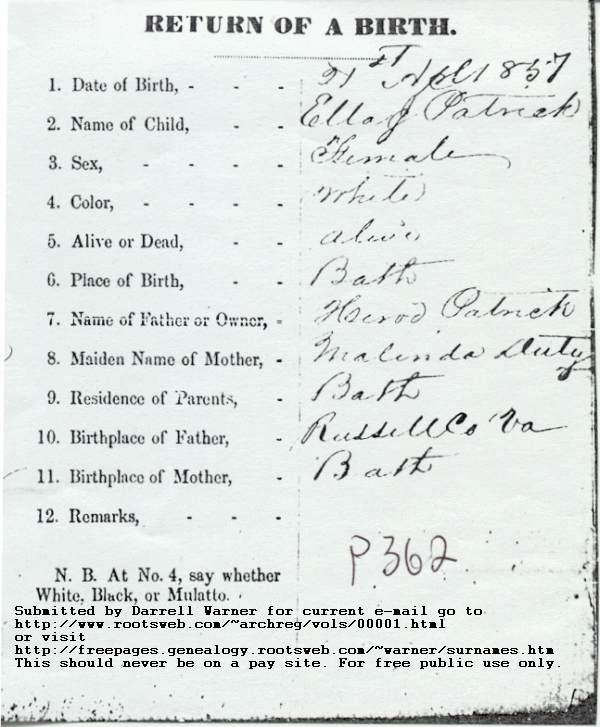 RETURN OF A BIRTH.
1. Date of Birth, - - - 21st Apl 1857
2. Name of Child, - - Ella J Patrick
3. Sex, - - - - Female
4. Color, - - - - White
5. Alive or Dead, - - alive
6. Place of Birth, - - Bath
7. Name of Father or Owner, - Herod Patrick
8. Maiden Name of Mother, - Malinda Duty
9. Residence of Parents, - Bath
10. Birthplace of Father, - Russell Co Va
11. Birthplace of Mother, - Bath
12. Remarks, - - -
P362
N. B. At No. 4, say whether
White, Black, or Mulatto.
Submitted by Darrell Warner for current e-mail go to
http://www.rootsweb.com/~archreg/vols/00001.html
or visit
http://freepages.genealogy.rootsweb.com/~warner/surnames.htm
This should never be on a pay site. For free public use only.